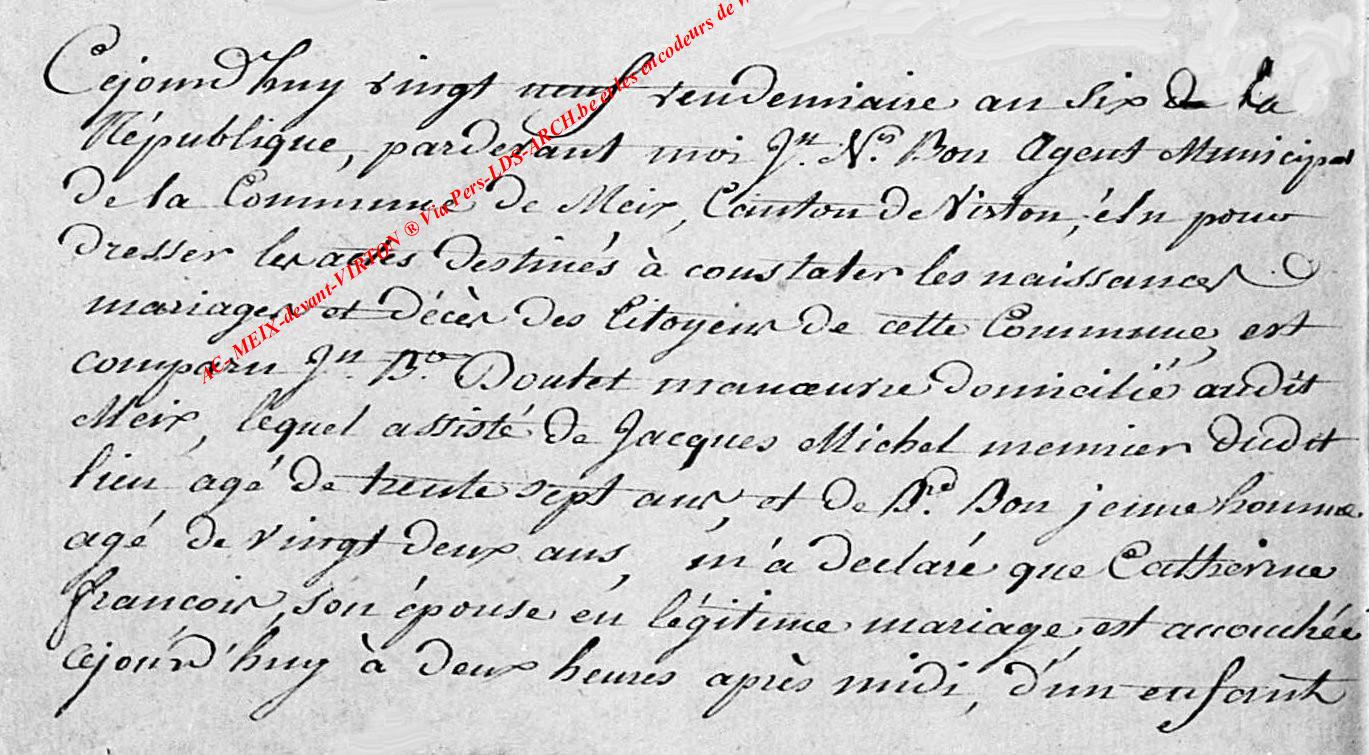 Cejourd'huy vingt neuf vendemiaire an six de la
République, pardevant moi Jn. Ns. Bon Agent Municipal
de la Commune de Meix, Canton de Virton, élu pour
dresser les actes destinés à constater les naissances
mariages et décès des Citoyens de cette Commune, est
comparu Jn. Bte. Doutet manœuvre domicilié audit
Meix, lequel assisté de Jacques Michel meunier dudit
lieu agé de trente sept ans, et de Bd. Bon jeune homme
agé de vingt deux ans, m'a declaré que Catherine
françois, son épouse en légitime mariage, est accouchée
cejourd'huy à deux heures après midi, d'un enfant
AC- MEIX-devant-VIRTON ® Via Pers-LDS-ARCH.be et les encodeurs de